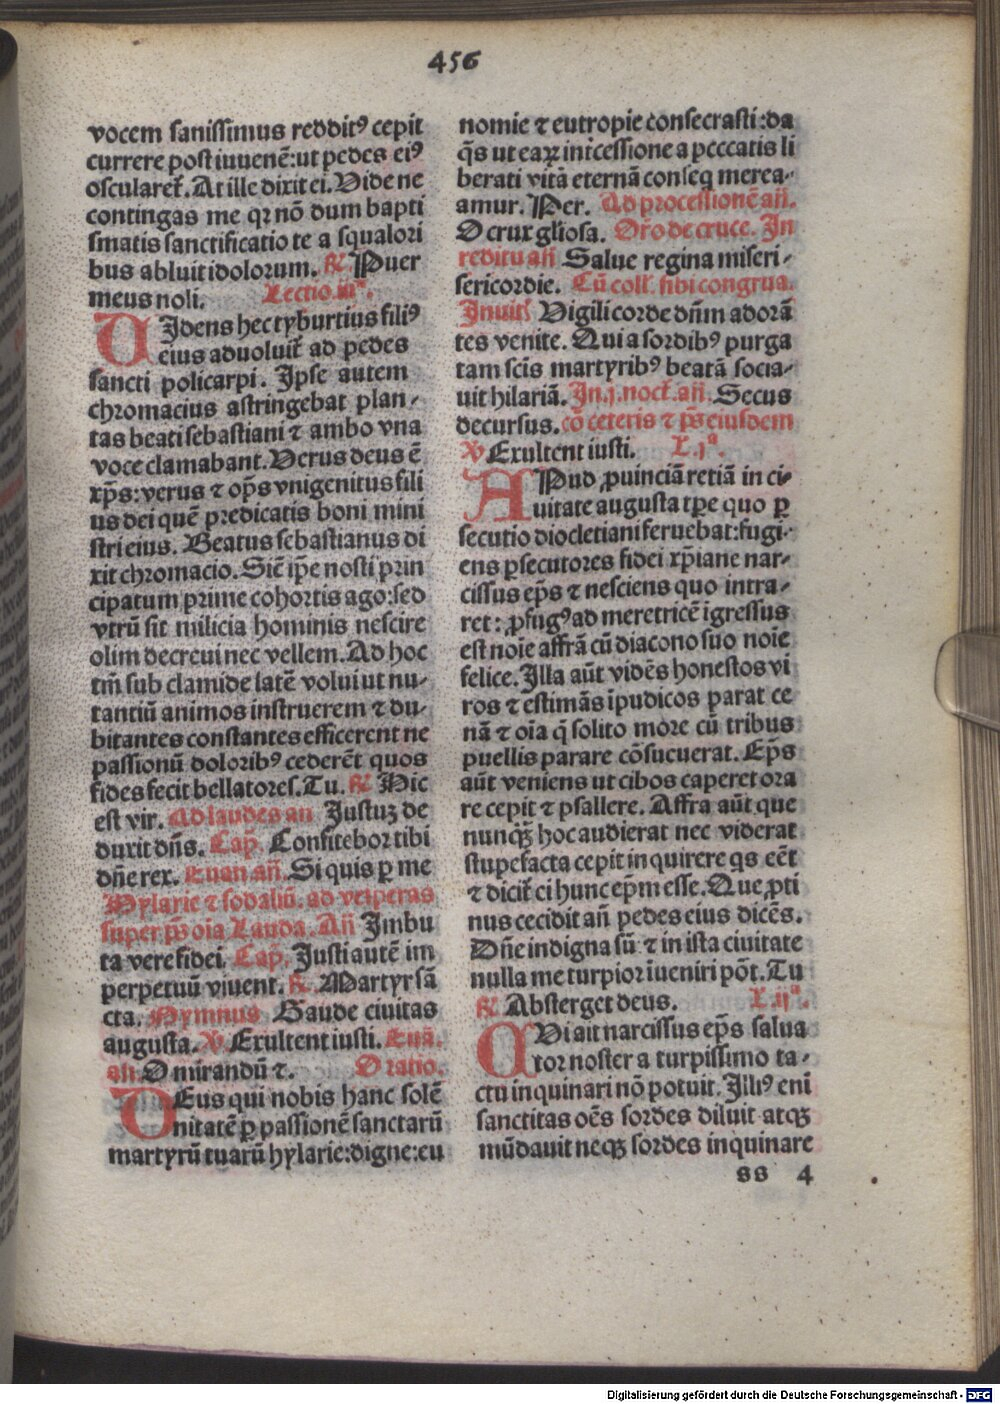 456
vocem sanissimus redditꝰ cepit
currere post iuuenē: ut pedes eiꝰ
oscularet᷑. At ille dixit ei. Vide ne
contingas me qꝛ nō dum bapti
smatis sanctificatio te a squalori
bus abluit idolorum. ℟ Puer
meus noli. Lectio.iiiᵃ.
VIdens hec tyburtius filiꝰ
eius aduoluit᷑ ad pedes
sancti policarpi. Ipse autem
chromacius astringebat plan-
tas beati sebastiani ⁊ ambo vna
voce clamabant. Verus deus ē
xp̄s: verus ⁊ op̄s vnigenitus fili
us dei quē predicatis boni mini
stri eius. Beatus sebastianus di
xit chromacio. Sic̄ ip̄e nosti prin
cipatum prime cohortis ago: sed
vtrū sit milicia hominis nescire
olim decreui nec vellem. Ad hoc
tm̄ sub clamide latē volui ut nu-
tantiū animos instruerem ⁊ du-
bitantes constantes efficerent ne
passionū doloribꝰ cederēt quos
fides fecit bellatores. Tu. ℟ Hic
est vir. Ad laudes an Justuꝫ de
duxit dn̄s. Cap̄. Confitebor tibi
dn̄e rex. Euan an̄. Si quis ꝑ me
Hylarie ⁊ sodaliū. ad vesperas
super ps̄ oīa Lauda. An̄ Imbu
ta vere fidei. Cap̄. Justi autē im
perpetuū viuent. ℟. Martyr sā
cta. Hymnus Gaude ciuitas
augusta. ℣. Exultent iusti. Euā.
an̄. O mirandū ⁊. Oratio.
DEus qui nobis hanc solē
nitatē ꝑ passionē sanctarū
martyrū tuarū hylarie: digne: eu
nomie ⁊ eutropie consecrasti: da
q̄s ut eaꝝ int᷑cessione a peccatis li
berati vitā eternā conseq merea-
amur. Per. Ad processionē an̄.
O crux gl̄iosa. Or̄o de cruce. In
reditu an̄ Salue regina miseri-
sericordie. Cū coll᷑. sibi congrua.
Inuit᷑ Vigili corde dn̄m adorā
tes venite. Qui a sordibꝰ purga
tam scīs martyribꝰ beatā socia-
uit hilariā. In.j.noct᷑.an̄. Secus
decursus. cō ceteris ⁊ ps̄ eiusdem
℣ Exultent iusti. L.jᵃ.
APud ꝓuinciā retiā in ci-
uitate augusta tꝑe quo ꝑ
secutio diocletiani feruebat: fugi-
ens ꝑsecutores fidei xp̄iane nar-
cissus ep̄s ⁊ nesciens quo intra-
ret: ꝓfugꝰ ad meretricē īgressus
est noīe affrā cū diacono suo noīe
felice. Illa aūt vidēs honestos vi
ros ⁊ estimās īpudicos parat ce
nā ⁊ oīa q̄ solito more cū tribus
puellis parare cōsueuerat. Ep̄s
aūt veniens ut cibos caperet ora
re cepit ⁊ psallere. Affra aūt que
nunqꝫ hoc audierat nec viderat
stupefacta cepit inquirere qs eēt
⁊ dicit᷑ ei hunc ep̄m esse. Que ꝓti
nus cecidit an̄ pedes eius dicēs.
Dn̄e indigna sū ⁊ in ista ciuitate
nulla me turpior īueniri pōt. Tu
℟ Absterget deus. L.ijᵃ.
QVi ait narcissus ep̄s salua
tor noster a turpissimo ta-
ctu inquinari nō potuit. Illiꝰ enī
sanctitas oēs sordes diluit atqꝫ
mūdauit neqꝫ sordes inquinare
ss 4
Digitalisierung gefördert durch die Deutsche Forschungsgemeinschaft - DFG